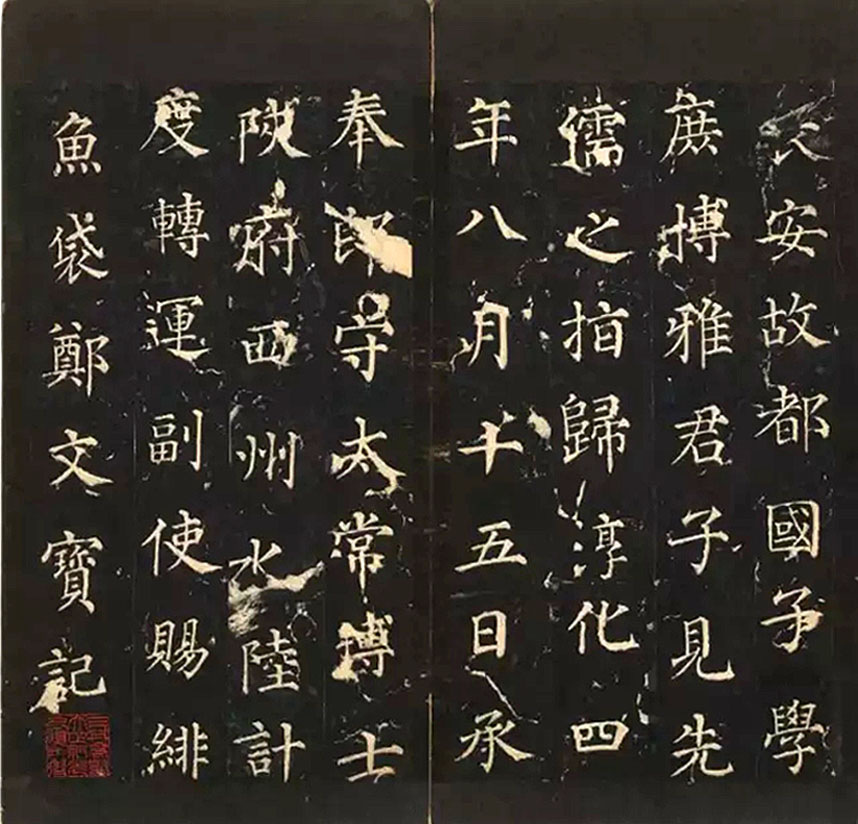 長安故都國子學
庶博雅君子見先
儒之指歸淳化四
年八月十五日承
奉郎守太常博士
陝府西州水陸計
度轉運副使賜緋
魚袋鄭文寶記